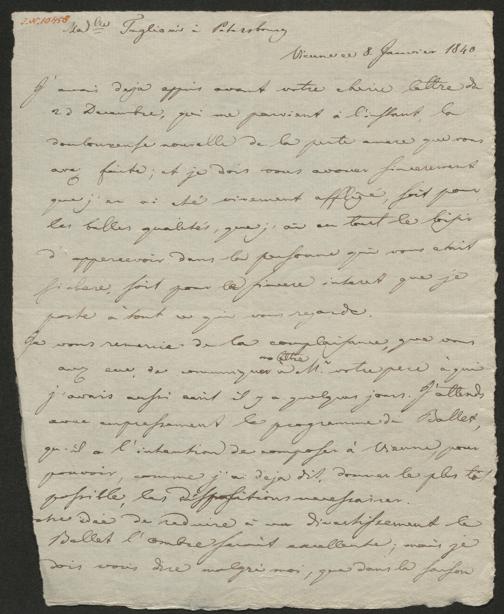 J.N. 10458
Mad^lle Taglioni à Petersbourg
Vienne ce 8. Janvier 1840
J'avais deja appris avant votre cherie lettre du
23 Decembre, qui me parvient à l'instant, la
douloureuse nouvelle de la perte amere que vous
avez faite; et je dois vous avouer sincerement
que j'en ai été vivement affligé, soit pour
les belles qualités, que j'ai eu tout le loisir
d'appercevoir dans la personne qui vous etait
si chere, soit pour le sincere interet que je
porte à tout ce qui vous regarde.
Je vous remercie de la complaisance, que vous
avez eue, de communiquer ma lettre à M^r votre pere à qui
j'avais aussi ecrit il y a quelques jours. J'attends
avec empressement le programme du Ballet,
qu'il a l'intention de composer à Vienne pour
pouvoir, comme j'ai deja dit, donner le plus tôt
possible, les dispositions necessaires.
Votre idée de reduire à un divertissement le
Ballet l'ombre serait excellente; mais je
dois vous dire malgré moi, que dans la saison